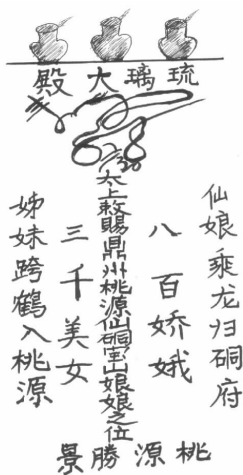 琉璃大殿
仙娘乘龙归硐府
八百娇娥
太上敕賜鼎州桃源仙硐宝山娘娘之位
三千美女
姊妹跨鶴入桃源
桃源勝景